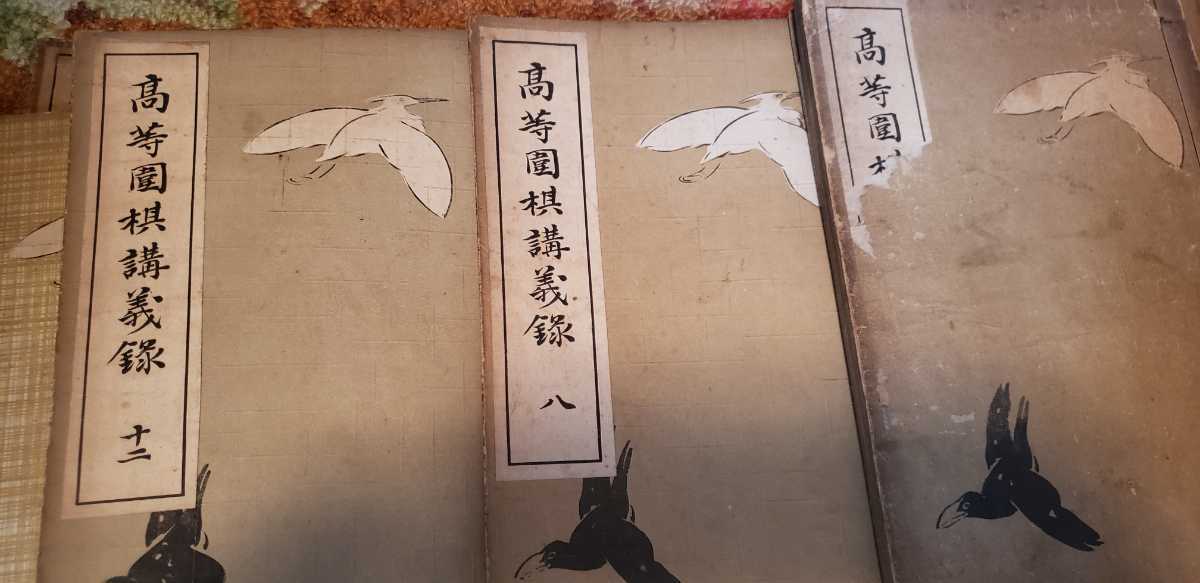 高等圍棋講義録
十二
高等圍棋講義録
八
高等圍